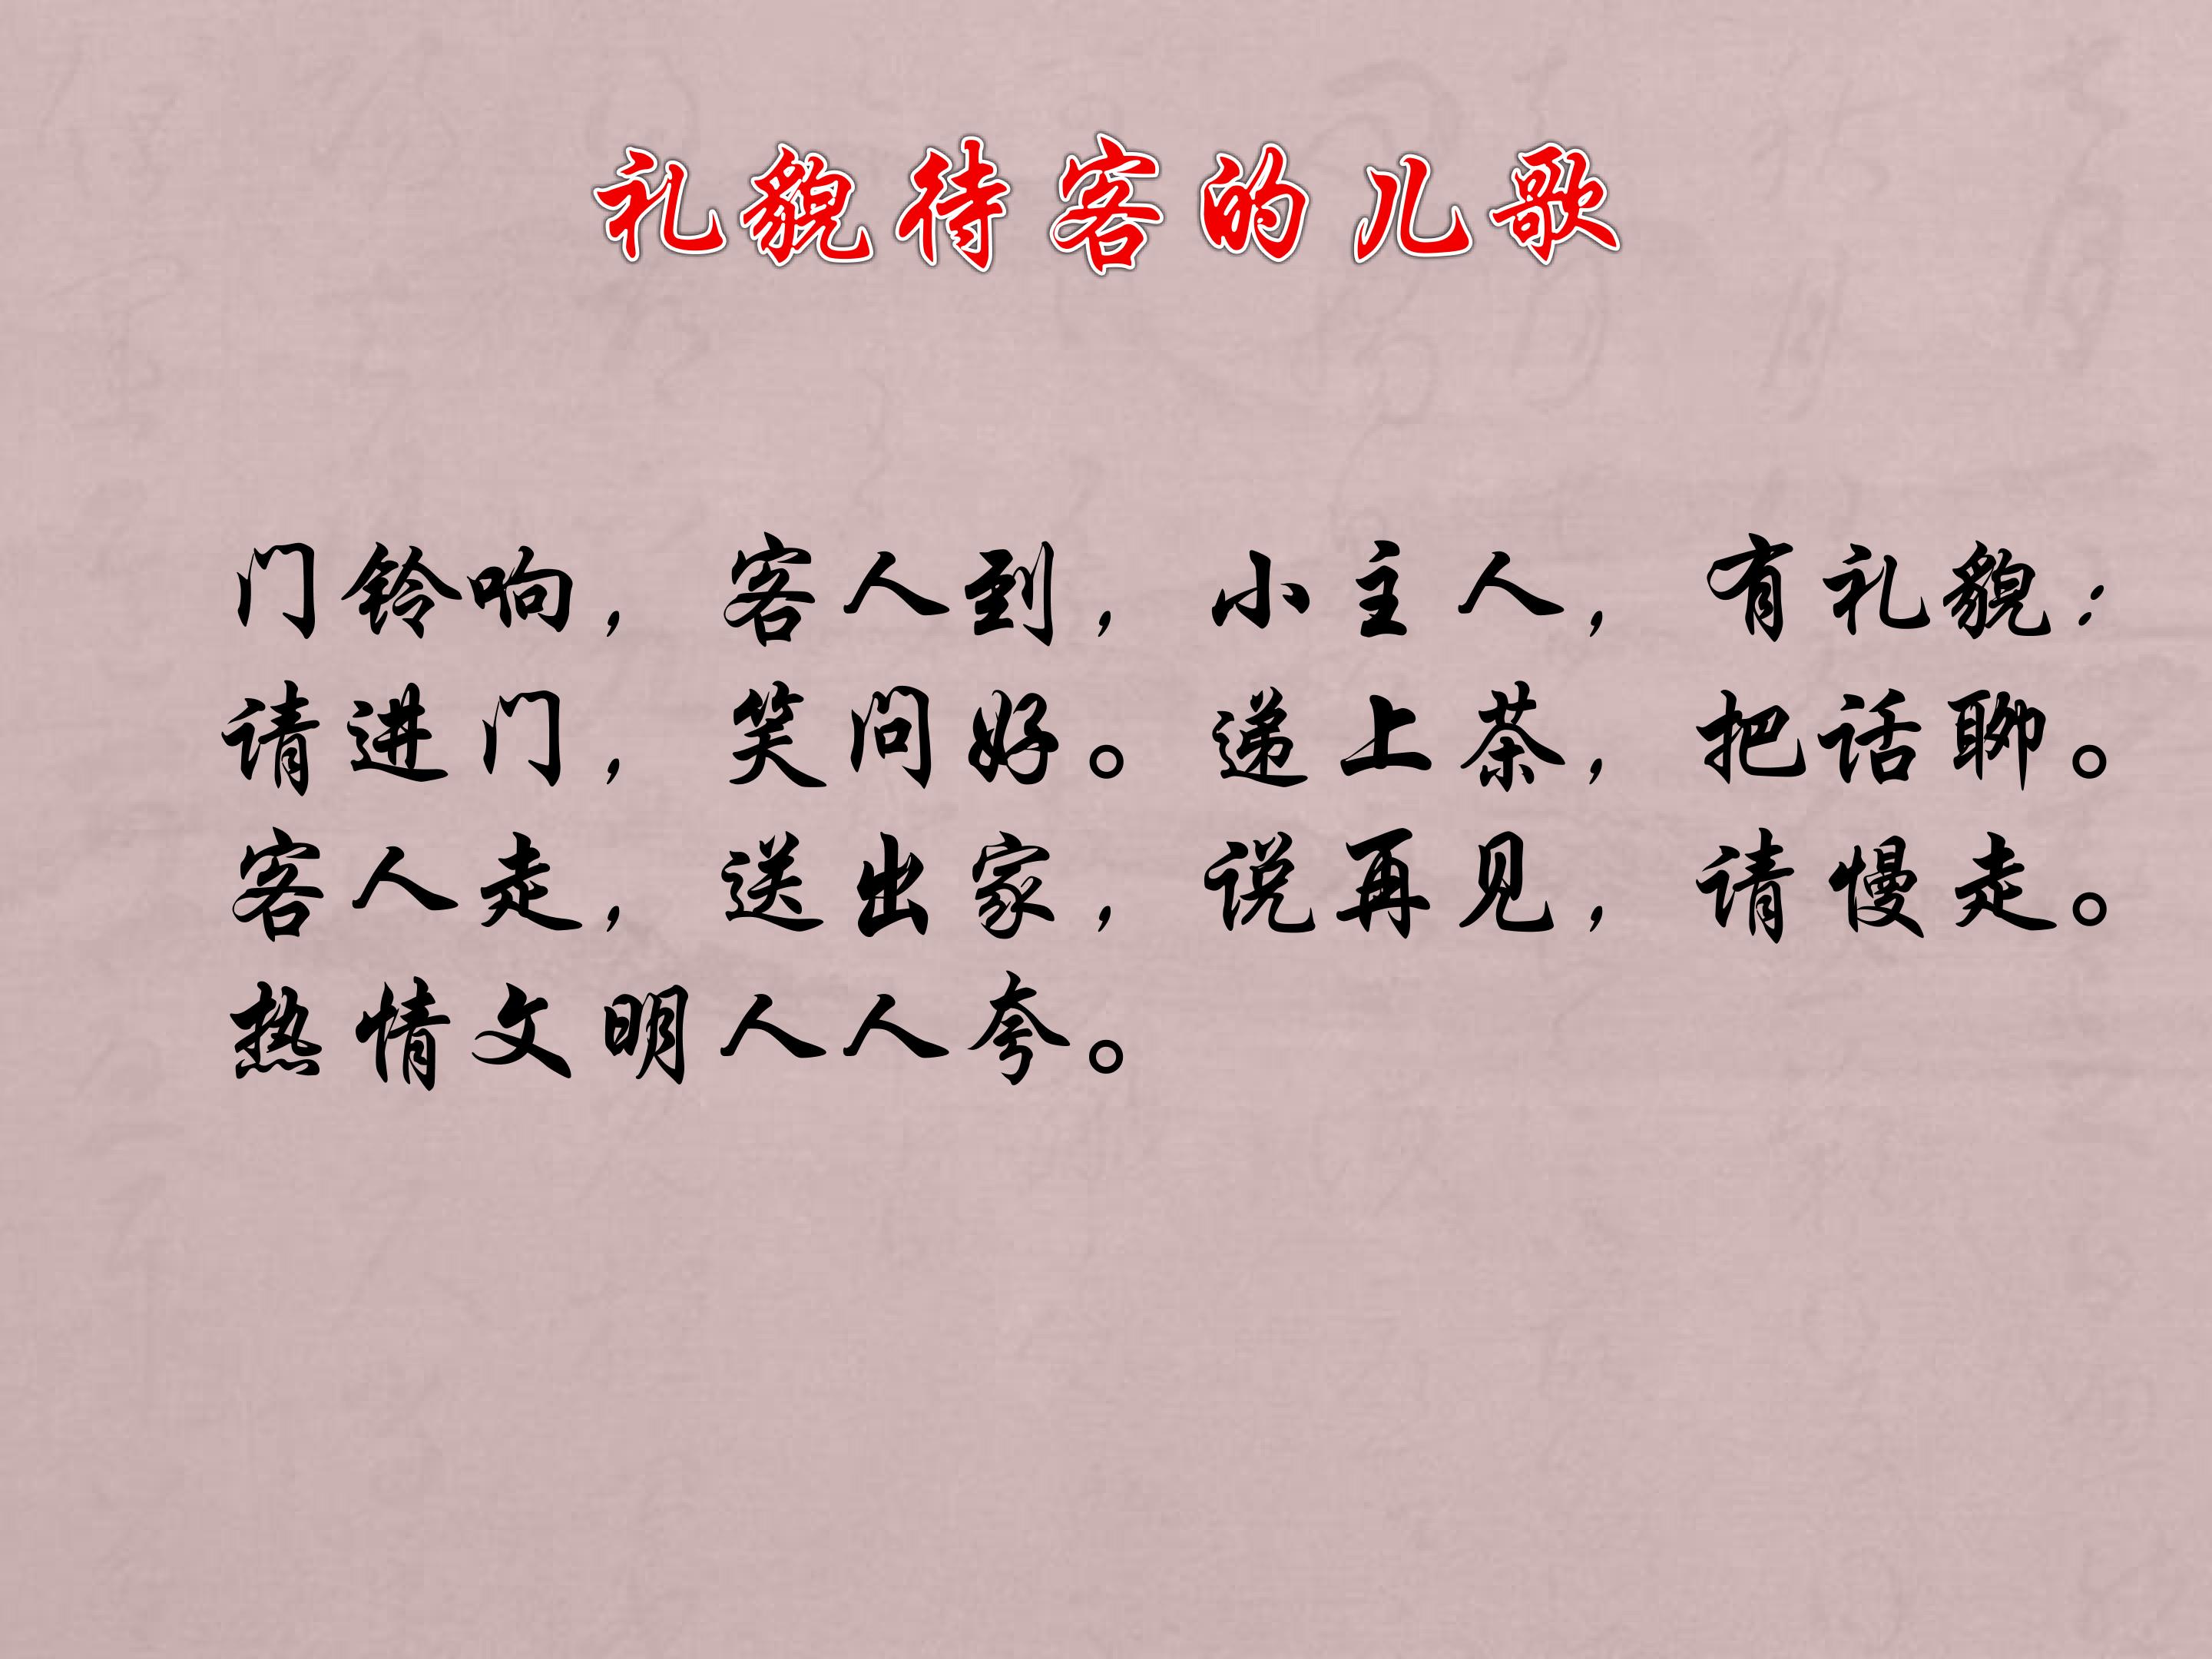 礼貌待客的儿歌
门铃响，客人到，小主人，有礼貌：
请进门，笑问好。递上茶，把话聊。
客人走，送出家，说再见，请慢走。
热情文明人人夸。